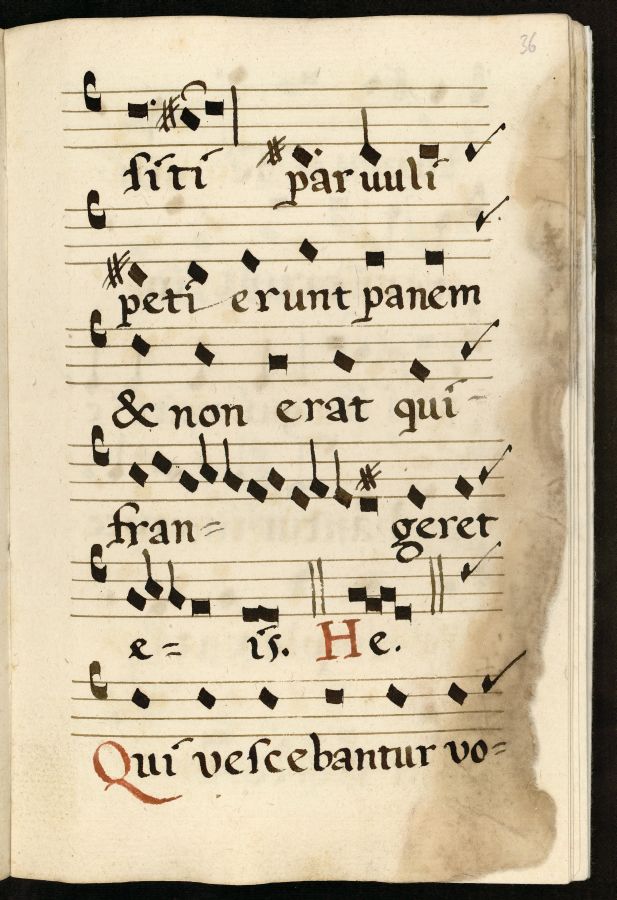 36
siti parvuli
peti erunt panem
& non erat qui-
fran= geret
e= is. He.
Qui vescebantur vo=